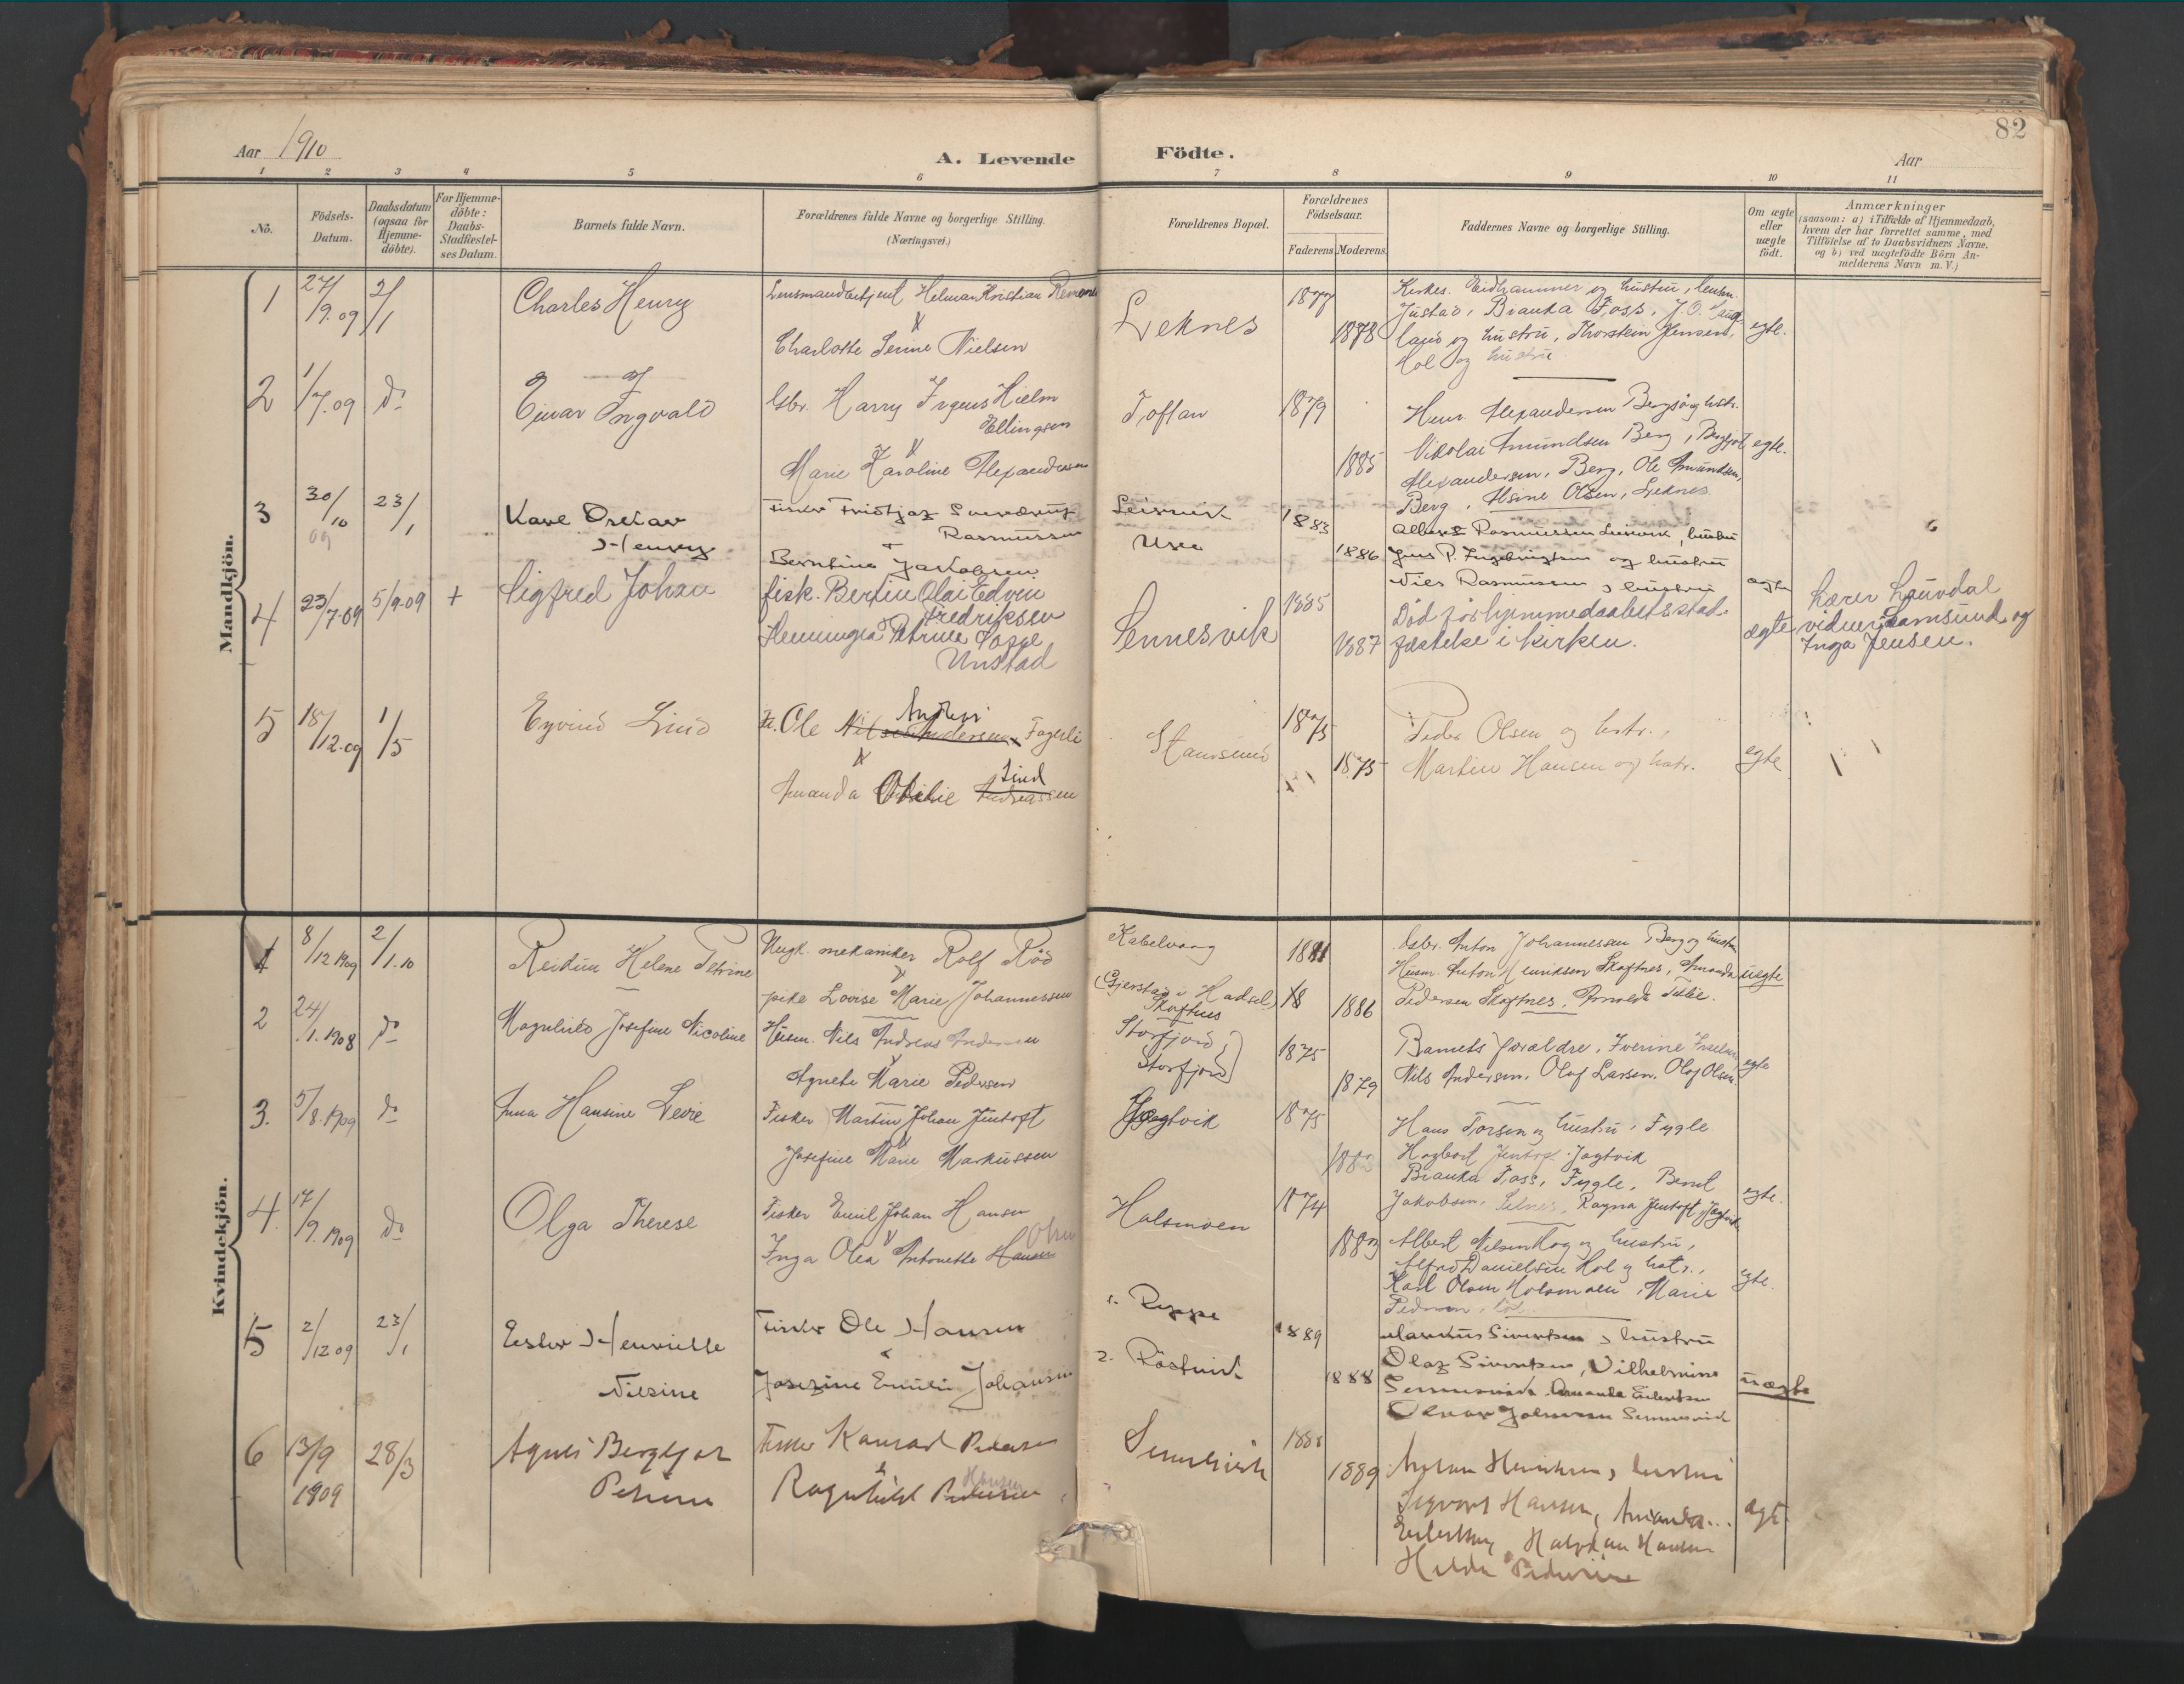 82
Aar 1910
A. Levende
Födte.
Aar
1 2 3 4 5 6 7 8 9 10 11
No.
Födsels-Datum.
Daabsdatum (ogsaa for Hjemme-döbte).
For Hjemme-döbte: Daabs-Stadfæstel-ses Datum.
Barnets fulde Navn.
Forældrenes fulde Navne og borgerlige Stilling.
(Næringsvei.)
Forældrenes Bopæl.
Forældrenes Födselsaar.
Faderens Moderens
Faddernes Navne og borgerlige Stilling.
Om ægte eller uægte födt.
Anmærkninger
(saasom: a) i Tilfælde af Hjemmedaab,
hvem der har forrettet samme, med
Tilföielse af to Daabsvidners Navne,
og b) ved uægtefödte Börn An-
melderens Navn m. V.)
Mandkjön.
1 27/9.09 2/1 Charles Henry
Lensmandbetjent Helman Kristian
Charlotte Serine Nielsen
Leknes 1877 1878
og hustru,
Justad, Bianka Foss, J.O.
land og hustru, Thorstein Jensen,
Hol og hustru
egte.
2 1/7.09 do Einar Ingvald
Gbr. Harry Irgens Hielm
Ellingsen
Marie Karoline Alexandersen
Toftan 1879 1885
Henr. Alexandersen Berg og hstr.
Nikolai Amundsen Berg,
Alexandersen, Berg, Ole Amundsen,
Berg, Alsine Olsen, Leknes.
egte.
3 30/10 09 23/1 Kare Oskar
Henry
Fisker Fridtjof
Rasmussen
Berntine Jakobsen
Ure
1883 1886
Albert Rasmussen Leirvik, hustru
Jens P. Ingebrigtsen og hustru
Nils Rasmussen & hustru
ægte
4 23/7.09 5/9.09 + Sigfred Johan
fisk. Bertin Olai Edvin
Fredriksen
Henningia Petrine
Unstad
Sennesvik 1885 1887
Död før hjemmedaabens stad-
fæstelse i kirken.
ægte
Lærer Lauvdal
vidner: Hamsund og
Inga Jensen.
5 18/12.09 1/5 Eyvind Lind
Fi. Ole Nilsen Andersen Fagerli
Anders
Amanda Otilie Andreassen
Lind
Stamsund 1875 1875
Peder Olsen og hstr.,
Martin Hansen og hstr.
egte
Kvindekjön.
1 8/12 1909 2/1.10 Reidun Helene Petrine
Ungk. mekaniker Rolf Röd
pike Lovise Marie Johannessen
Kabelvaag
(Gjerstad i Hadsel)
Skaftnes
1881 1886
Gbr. Anton Johannessen Berg og hustru
Husm. Anton Henriksen Skaftnes, Amanda
Pedersen Skaftnes,
uegte
2 24/1.1908 do Magnhild Josefine Nicoline
Husm. Nils Andreas Andersen
Agnete Marie Pedersen
Storfjord,
Storfjord
1875 1879
Barnets forældre, Iverine
Nils Andersen, Olaf Larsen, Olaf Olsen
egte
3. 5/8.1909 do Anna Hansine Levie
Fisker Martin Johan Jentoft
Josefine Marie Markussen
Jagtvik 1875
Hans Torsen og hustru, Fygle
Hagbart Jentoft Jagtvik
Bianka Foss, Fygle, Bernt
Jakobsen, Ragna Jentoft, Jagtvik
egte.
4. 17/9.1909 do Olga Therese
Fisker Emil Johan Hansen
Inga Olea Antonette Hansen
Olsen
Holsmoen 1874 1883
Albert Nilsen Hag og hustru,
Alfred Danielsen Hol og hstr.,
Karl Olsen Holsmoen, Marie
Pedersen,
egte.
5 2/12 09 23/1 Ester Henriette
Nilsine
Fisker Ole Hansen
Josefine Emilie Johansen
1. Reppe
2. Röstvik
1889 1888
Markus Sivertsen & hustru
Olaf Sivertsen, Vilhelmine
Sennesvik. Amanda Eilertsen
Johansen Sennesvik
uægte
6 13/9 1909 28/3 Agnes Bergljot
Petrine
Fisker Konrad Pedersen
Ragnhild Pedersen
Hansen
Sennesvik 1888 1889
& hustru
Sigvart Hansen, Amanda
Eilertsen, Halvdan Hansen
Hilda Pedersen
ægt.